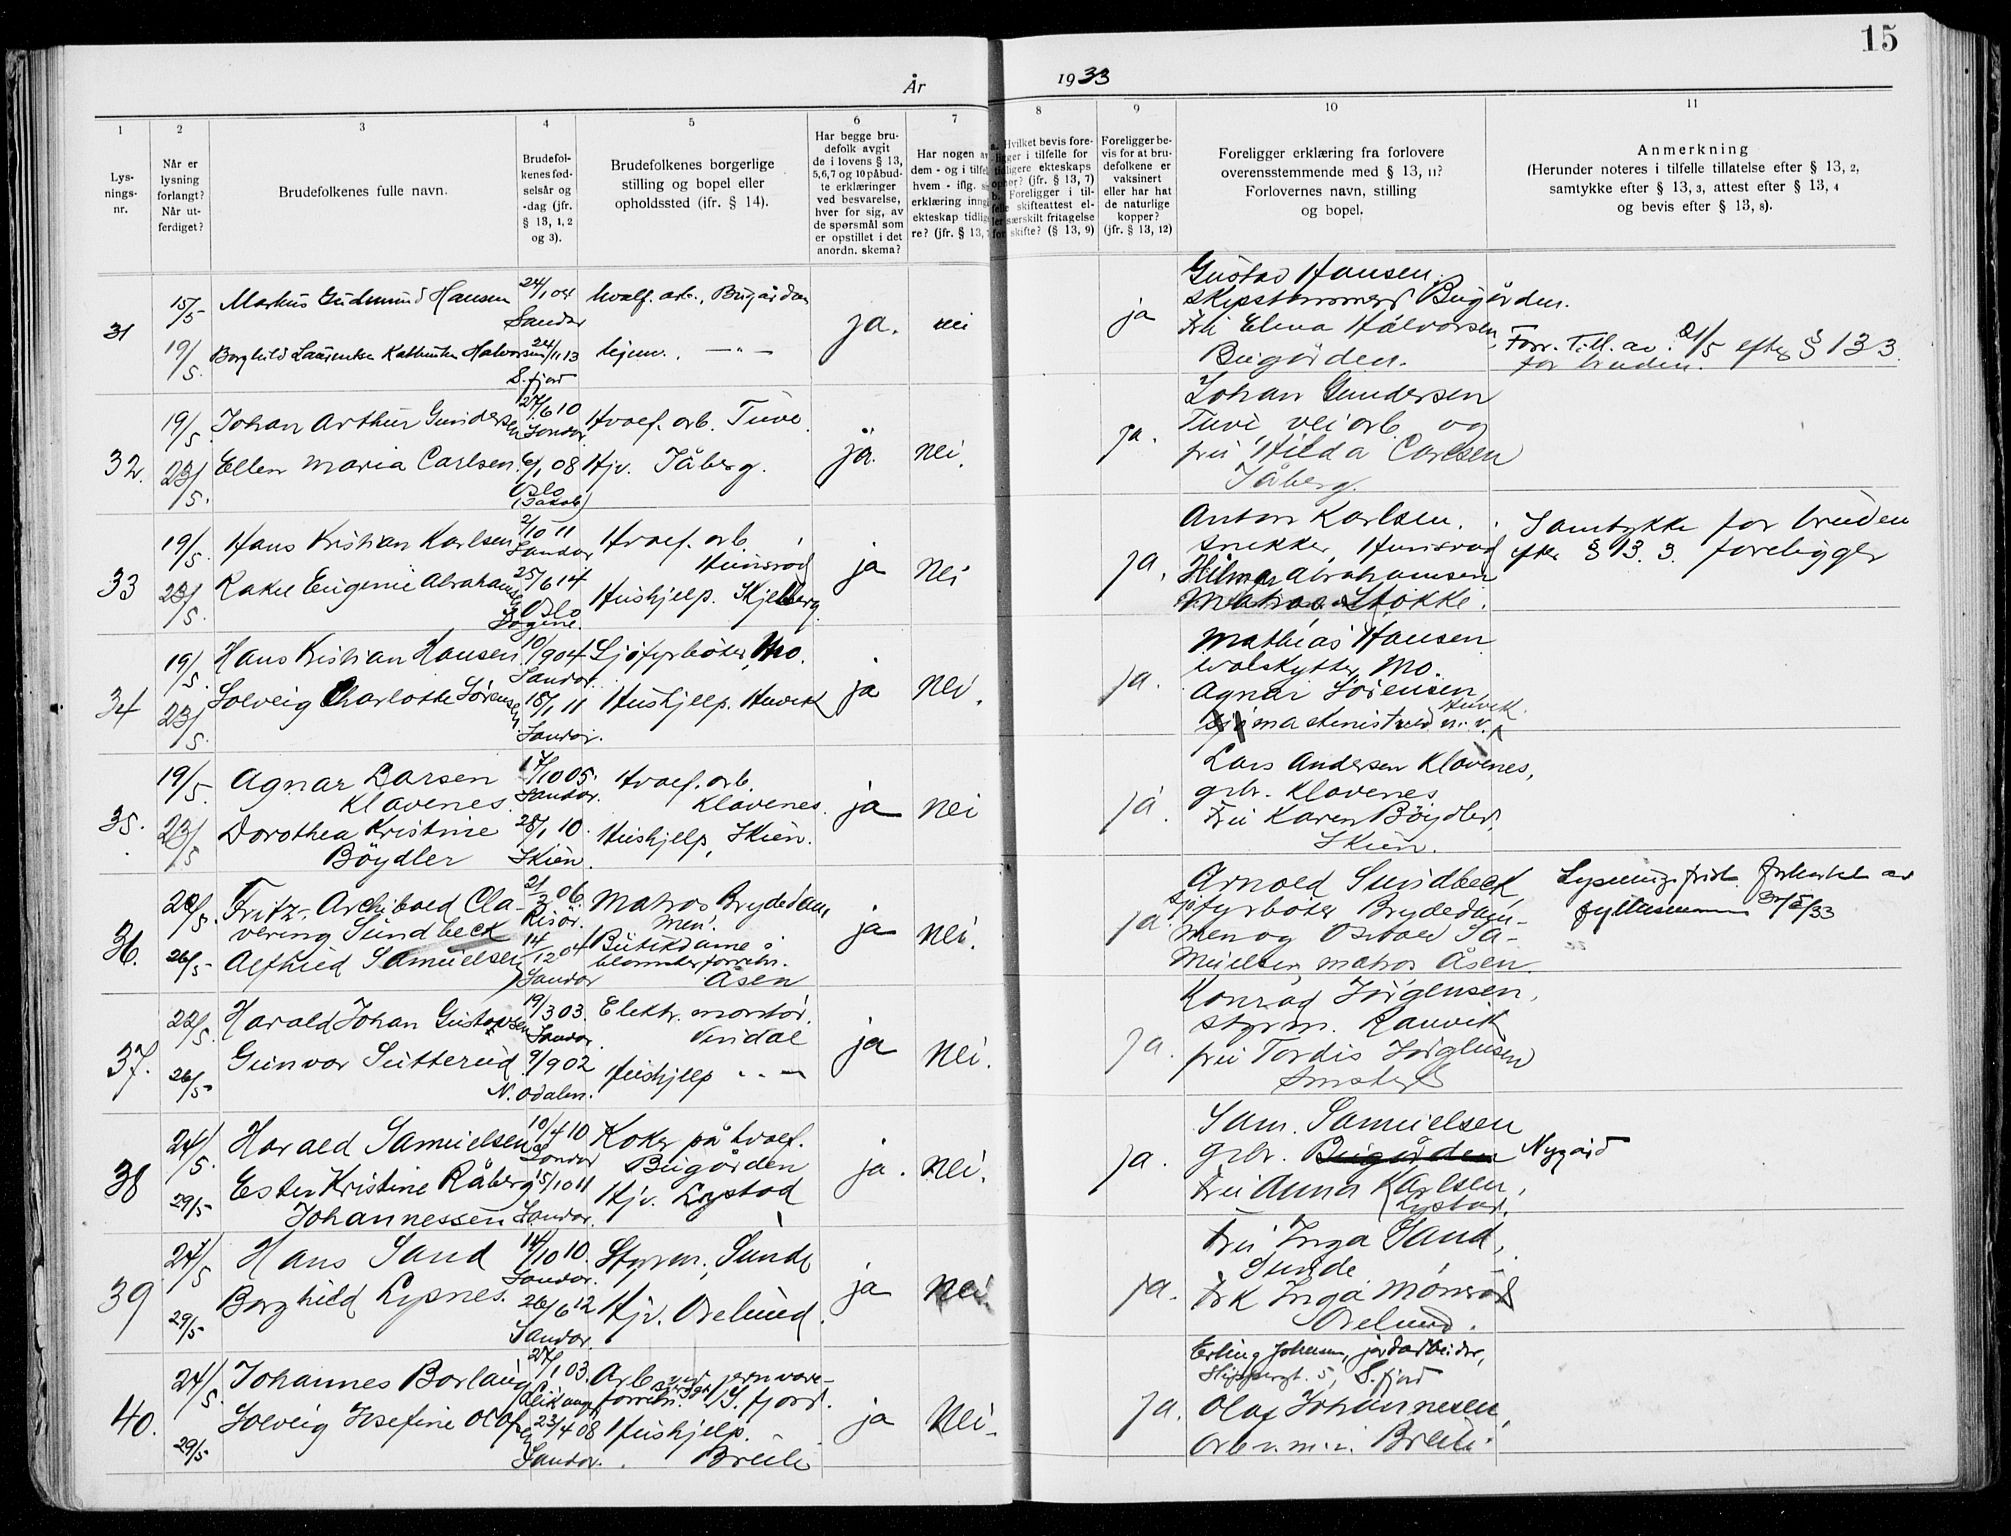 15
År 1933
1
2
3
4
5
6
7
8
9
10
11
Lys-
nings-
nr.
Når er
lysning
forlangt?
Når ut-
ferdiget?
Brudefolkenes fulle navn.
Brudefol-
kenes fød-
selsår og
-dag (jfr.
§ 13, 1, 2
og 3).
Brudefolkenes borgerlige
stilling og bopel eller
opholdssted (ifr. § 14).
Har begge bru-
defolk avgit
de i lovens § 13,
5,6,7 og 10 påbud-
te erklæringer
ved besvarelse,
hver for sig, av
de spørsmål som
er opstillet i det
anordn. skema?
Har nogen av
dem - og i tilfel
hvem - iflg. s
erklæring inng
ekteskap tidlig
re? (jfr. § 13,
Hvilket bevis fore-
ligger i tilfelle for
tidligere ekteskaps
ophør? (jfr. § 13, 7)
b. Foreligger i til-
felle skifteattest el-
ler særskilt fritagelse
for skifte? (§ 13, 9)
Foreligger be-
vis for at bru-
defolkene er
vaksinert
eller har hat
de naturlige
kopper?
(jfr. § 13, 12)
Foreligger erklæring fra forlovere
overensstemmende med § 13, 11?
Forlovernes navn, stilling
og bopel.
Anmerkning
(Herunder noteres i tilfelle tillatelse efter § 13, 2,
samtykke efter § 13, 3, attest efter § 13, 4
og bevis efter § 13, 8).
31
15/5 Markus Gudmund Hansen 24/1 04 hvalf. arb., Bugården
Sandar
19/5 Borghild Laurenka Kathinka Halvorsen 24/11 13 hjem. — " —
S. fjord
ja. nei
ja
Gustav Hansen
skipstømmerm. Bugården.
Fru Elena Halvorsen,
Bugården.
Forr. Till. av 21/5 efter § 13 3.
for bruden.
32.
19/5. Johan Arthur Gundersen 27/6 10 Hvalf. arb. Tuve
Sandar.
23/5. Ellen Maria Carlsen. 6/1 08 Hjv. Jåberg.
Oslo
(Jakob)
ja. nei.
ja.
Johan Gundersen
Tuve veiarb. og
fru Hilda Carlsen
Jåberg.
33
19/5. Hans Kristian Karlsen 2/10 11 Hvalf. arb.
Sandar Hunsrød
23/5. Rakel Eugenie Abrahamsen 25/6 14 Hushjelp. Skjelberg
Oslo
ja nei
ja.
Anton Karlsen.
snekker, Hunsrød
Hilmar Abrahamsen
Matros, Stokke.
Samtykke for bruden
efter § 13. 3. foreligger
34
19/5. Hans Kristian Hansen 10/9 04 Sjøfyrbøter, Mo.
Sandar.
23/5. Solveig Charlotte Sørensen. 18/1 11 Hushjelp. Huvik
Sandar.
ja nei.
ja.
Mathias Hansen
hvalskytter, Mo.
Agnar Sørensen,
Huvik
maskinist
35.
19/5. Agnar Larsen 17/10 05. Hvalf. arb.
Klavenes. Sandar. Klavenes.
23/5 Dorothea Kristine 28/1 10. Hushjelp, Skien.
Böydler Skien.
ja nei
ja.
Lars Andersen Klavenes,
grbr. Klavenes
Fru Karen Böydler,
Skien.
36.
20/5. Fritz Archibald Cla- 21/2 06. Matros Brydedam-
vering Sundbeck Risør. men.
26/5 Alfhild Samuelsen 14/12 04 Butikdame i
Sandar blomsterforretn.
Åsen
ja nei.
ja.
Arnold Sundbeck
Sjøfyrbøter Brydedam-
men og Osvald Sa-
muelsen, matros Åsen.
Lysningsfrist forkortet av
fylkesmannen 30/5/33
37.
22/5. Harald Johan Gustavsen 19/3 03. Elektr. montør.
Sandar. Viridal
26/5 Gunvor Sutterud 9/9 02 Hushjelp — " —
N. Odalen.
ja nei.
ja.
Konrad Jørgensen,
styrm. Ranvik
fru Tordis Jørgensen
38
24/5. Harald Samuelsen 10/4 10 Kokk på hvalf.
Sandar Bugården
29/5 Ester Kristine Råberg 15/10 11 Hjv. Lystad
Johannessen Sandar.
ja. nei.
ja.
Sam. Samuelsen
grbr. Bugården Nygård
Fru Anna Karlsen,
Lystad.
39
24/5 Hans Sand 14/10 10. Styrm., Sunde
Sandar.
29/5 Borghild Lysnes. 26/6 12 Hjv. Orelund.
Sandar.
ja nei.
ja.
Fru Inga Sand,
Sunde
Frk Inga Mønrød
Orelund.
40.
24/5. Johannes Borlaug 27/1 03. Arb. ved jernvare-
Leikanger forretn. S. fjord.
29/5 Solveig Josefine Olofsen 23/4 08 Hushjelp.
Sandar. Breili
ja nei.
ja.
Erling Johnsen, jordarbeider,
5, S. fjord
Olaf Johannesen,
Arb. Breili.